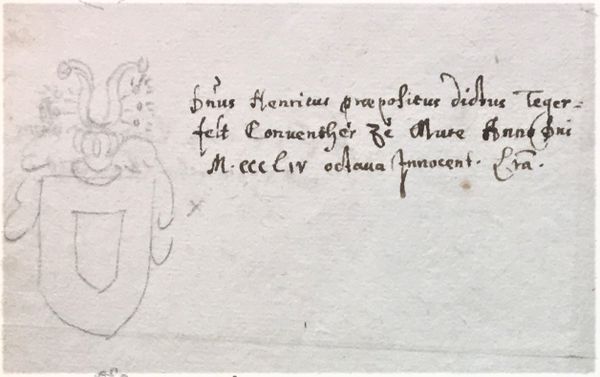 Dn̄us Henricus præpositus dictus Teger=
felt Conventher ze Mure Anno Dni
M. CCCLIV octava Innocent. Lr̄a.